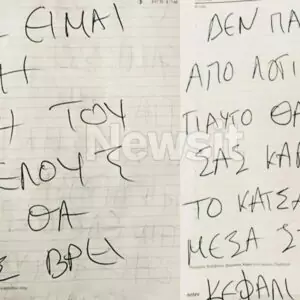 ΕΙΜΑΙ
Η
Η ΤΟΥ
ΕΛΟΥΣ
ΘΑ
Σ ΒΡΕΙ
ΔΕΝ ΠΑ
ΑΠΟ ΛΟΓΙ
ΓΙΑΥΤΟ ΘΑ
ΣΑΣ ΚΑΡ
ΤΟ ΚΑΤΣΑ
ΜΕΣΑ ΣΤ
ΚΕΦΑΛΙ
Newsit